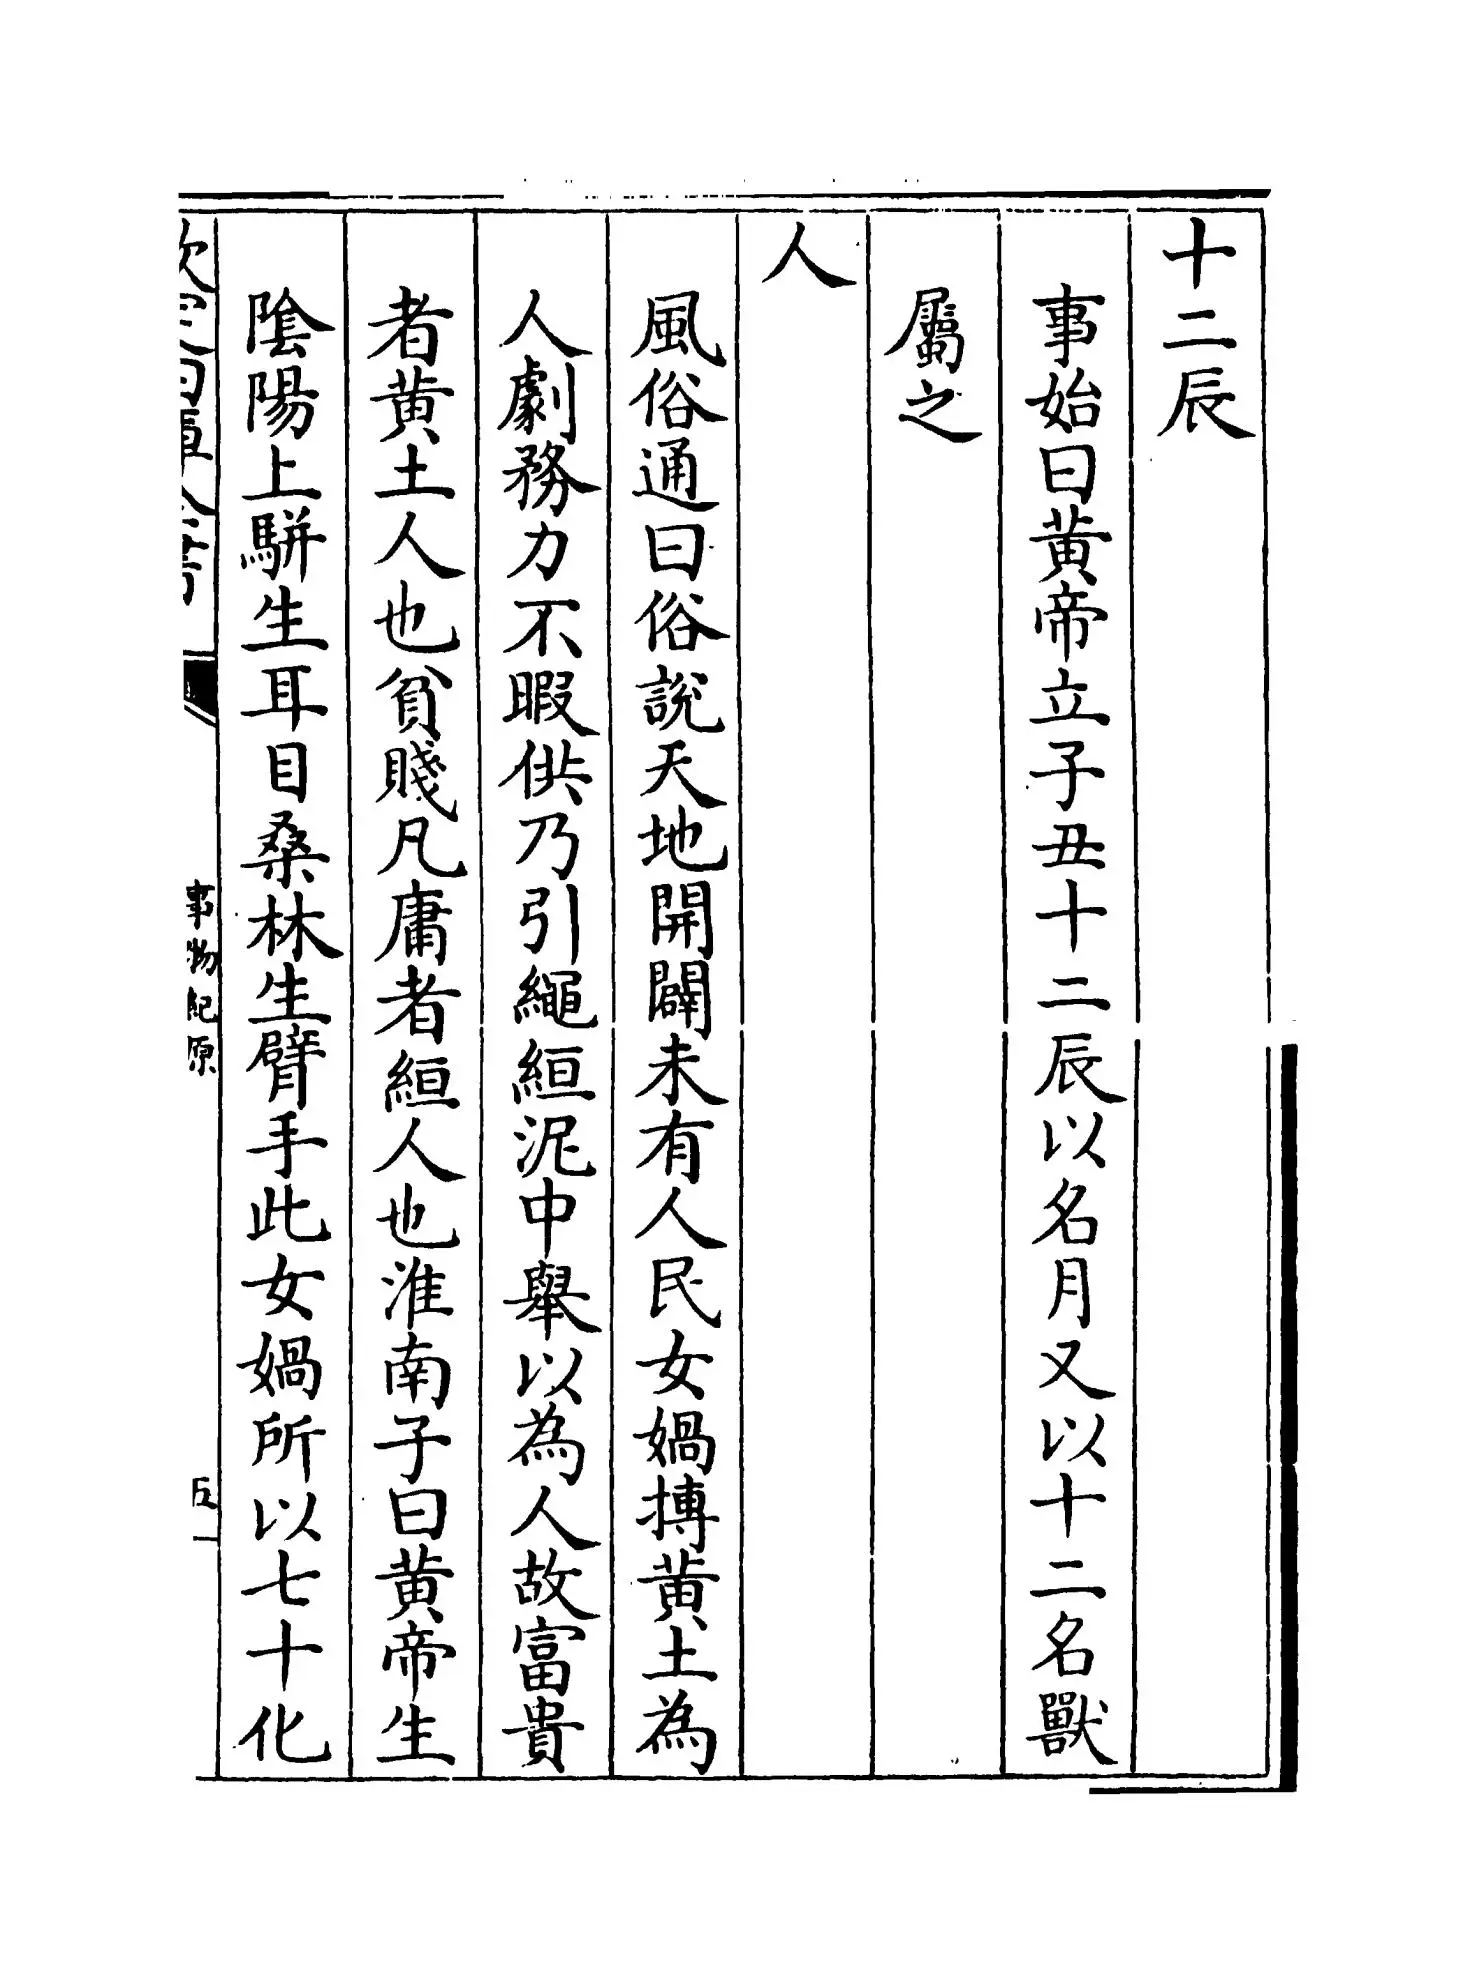 十二辰
事始曰黄帝立子丑十二辰以名月又以十二名獸
屬之
人
風俗通曰俗說天地開闢未有人民女媧摶黄土為
人劇務力不暇供乃引繩絙泥中舉以為人故富貴
者黄土人也貧賤凡庸者絙人也淮南子曰黄帝生
陰陽上駢生耳目桑林生臂手此女媧所以七十化
事物紀原